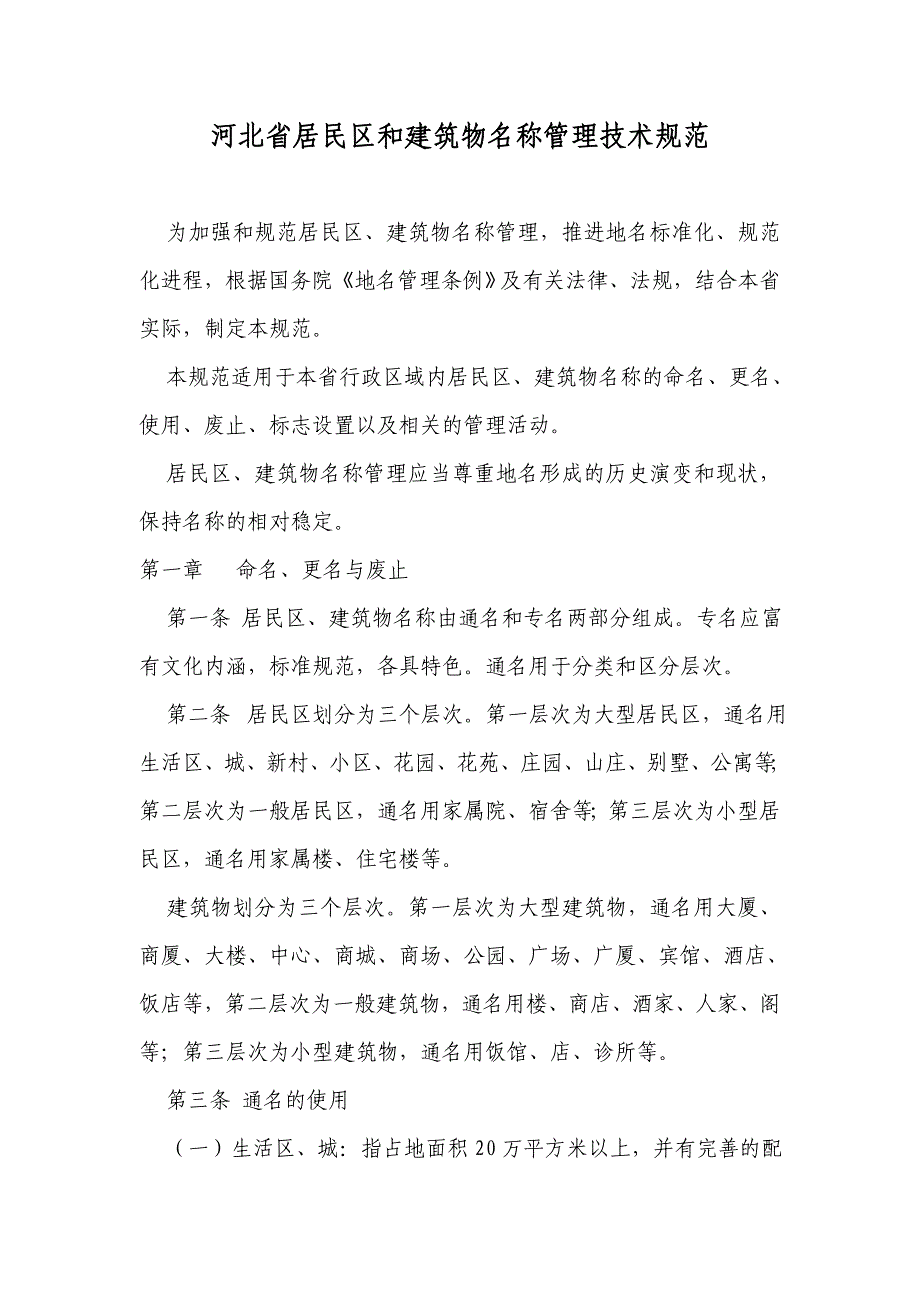 河北省居民区和建筑物名称管理技术规范
为加强和规范居民区、建筑物名称管理，推进地名标准化、规范
化进程，根据国务院《地名管理条例》及有关法律、法规，结合本省
实际，制定本规范。
本规范适用于本省行政区域内居民区、建筑物名称的命名、更名、
使用、废止、标志设置以及相关的管理活动。
居民区、建筑物名称管理应当尊重地名形成的历史演变和现状，
保持名称的相对稳定。
第一章 命名、更名与废止
第一条 居民区、建筑物名称由通名和专名两部分组成。专名应富
有文化内涵，标准规范，各具特色。通名用于分类和区分层次。
第二条 居民区划分为三个层次。第一层次为大型居民区，通名用
生活区、城、新村、小区、花园、花苑、庄园、山庄、别墅、公寓等；
第二层次为一般居民区，通名用家属院、宿舍等；第三层次为小型居
民区，通名用家属楼、住宅楼等。
建筑物划分为三个层次。第一层次为大型建筑物，通名用大厦、
商厦、大楼、中心、商城、商场、公园、广场、广厦、宾馆、酒店、
饭店等，第二层次为一般建筑物，通名用楼、商店、酒家、人家、阁
等；第三层次为小型建筑物，通名用饭馆、店、诊所等。
第三条 通名的使用
（一）生活区、城：指占地面积 20 万平方米以上，并有完善的配